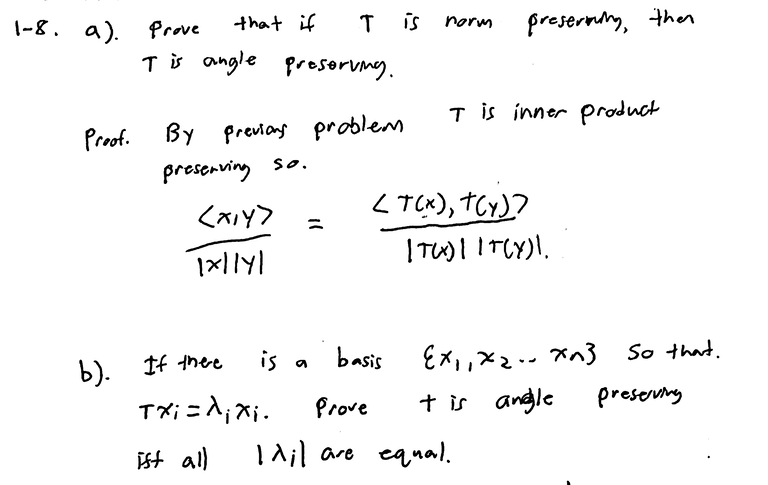 1-8. a). Prove that if T is norm preserving, then
T is angle preserving.
Proof. By previous problem T is inner product
preserving so.
<x,y> / |x||y| = <T(x), T(y)> / |T(x)| |T(y)|.
b). If there is a basis {x1, x2 .. xn} so that.
Txi = λixi. Prove T is angle preserving
iff all |λi| are equal.